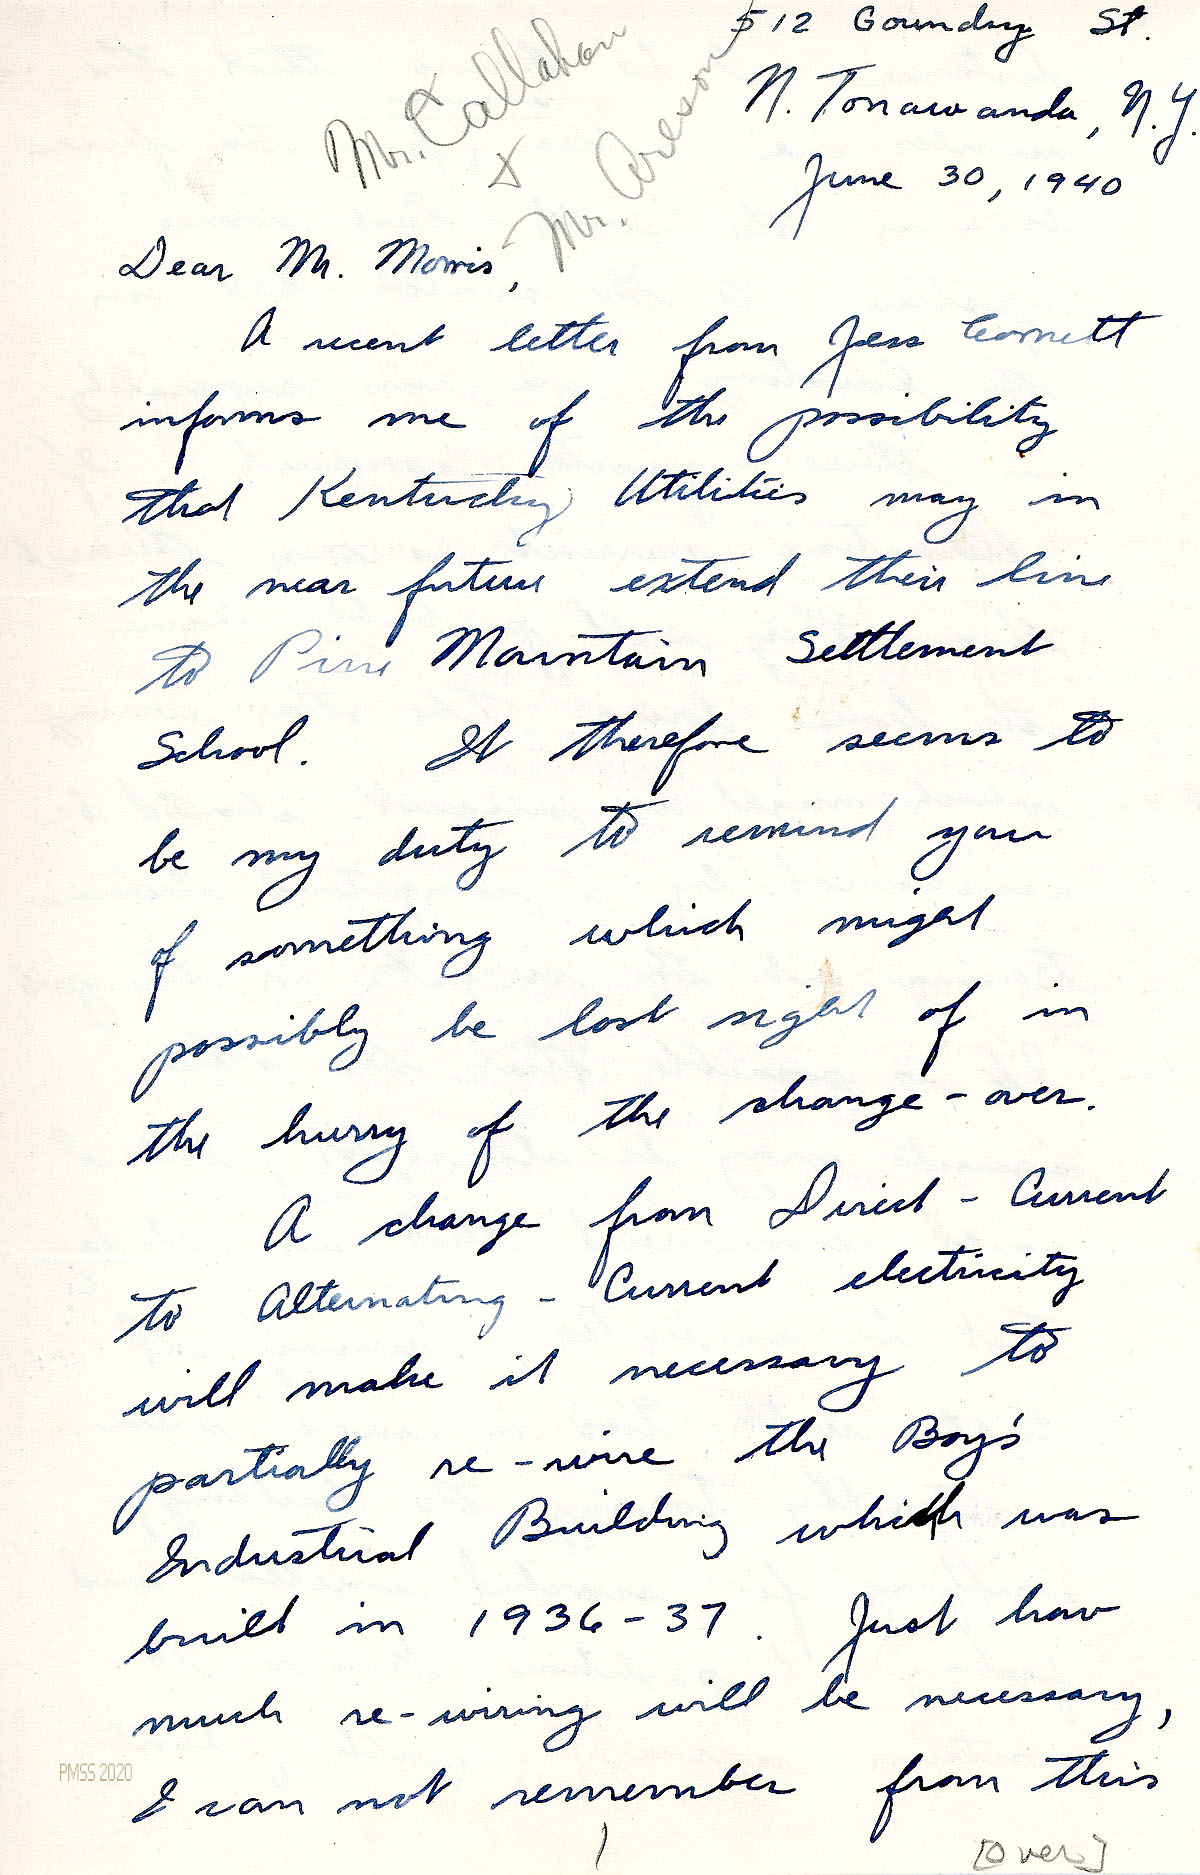 512 Goundry St.
N. Tonawanda, N.Y.
June 30, 1940
Mr. Callahan
&
Mr. Arleson
Dear Mr. Morris,
A recent letter from Jess Cornett
informs me of the possibility
that Kentucky Utilities may in
the near future extend their line
to Pine Mountain Settlement
School. It therefore seems to
be my duty to remind you
of something which might
possibly be lost sight of in
the hurry of the change-over.
A change from Direct-Current
to Alternating-Current electricity
will make it necessary to
partially re-wire the Boy's
Industrial Building which was
built in 1936-37. Just how
much re-wiring will be necessary,
I can not remember from this
PMSS 2020
[over]